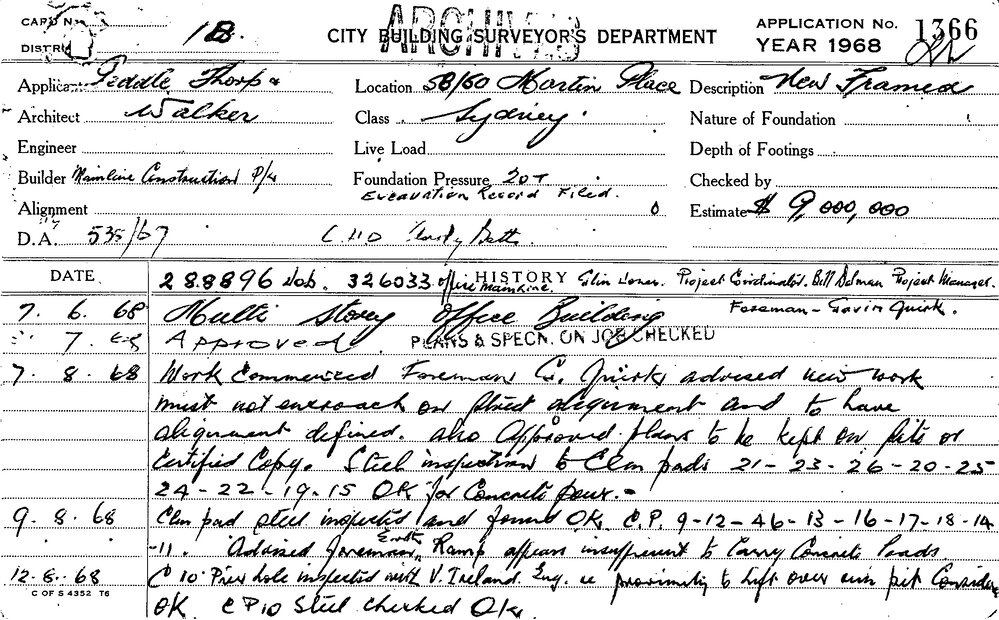 CARD No.
DISTRI 1B.
ARCHIVES
CITY BUILDING SURVEYOR'S DEPARTMENT
APPLICATION No. 1366
YEAR 1968
Applicant Peddle Thorp &
Location 58/60 Martin Place
Description New Framed
Architect Walker
Class Sydney.
Nature of Foundation
Engineer
Live Load
Depth of Footings
Builder Mainline Construction P/L
Foundation Pressure 20T
Excavation Record Filed.
Checked by
Alignment
Estimate $ 9,000,000
D.A. 535/67
DATE
288896 Job. 326033 office Mainline. HISTORY Project Coordinator. Bill Project Manager.
7. 6. 68 Multi Storey Office Building Foreman - Gavin Quirk.
7. 68 Approved. PLANS & SPECN. ON JOB CHECKED
7. 8. 68 Work Commenced Foreman G. Quirk advised new work
must not encroach on Street alignment and to have
alignment defined. also Approved plans to be kept on site or
Certified Copy. Steel inspection to Clm pads 21-23-26-20-25
24-22-19-15 OK for Concrete pour.-
9. 8. 68 Clm pad steel inspected and found OK. C.P. 9-12-46-13-16-17-18-14
-11. Advised foreman Earth Ramp appears insufficient to Carry Concrete loads.
12. 8. 68 C 10 Pier hole inspected with V. Ireland. Eng. re proximity to lift over pit Consider
OK CP10 Steel checked OK.
C OF S 4352 T6